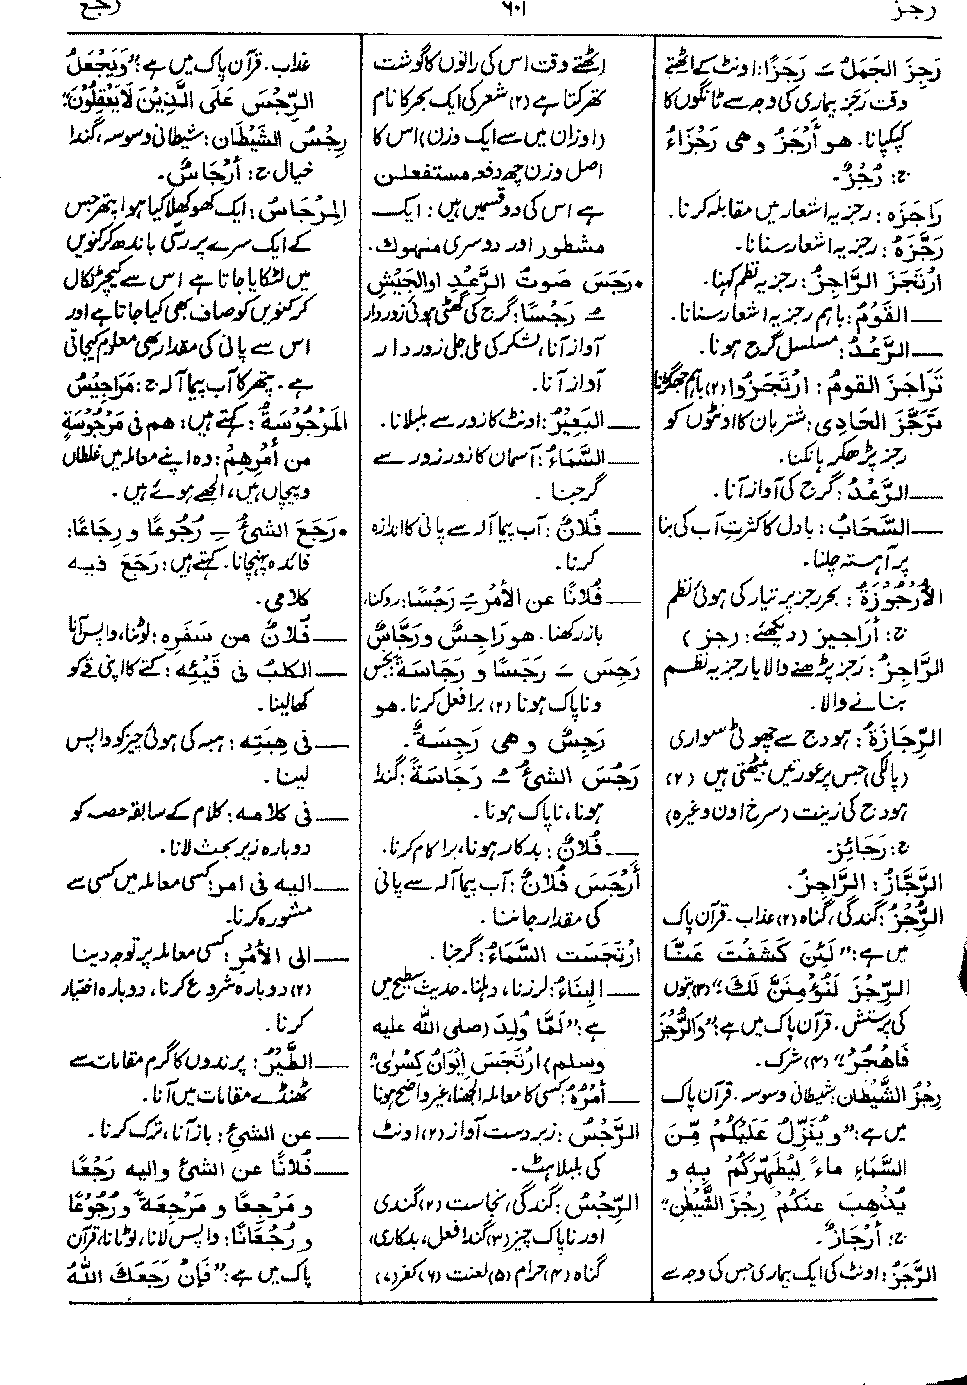 رجز
٦٠١
رجع
رَجِزَ الجَمَلُ ـَ رَجَزًا: اونٹ کے اٹھتے
وقت رَجَز بیماری کی وجہ سے ٹانگوں کا
کپکپانا. هو أَرْجَزُ وهی رَجْزَاءُ
ج: رُجْزٌ۔
رَاجَزَہٗ: رجزیہ اشعار میں مقابلہ کرنا.
رَجَّزَہٗ: رجزیہ اشعار سنانا.
ارْتَجَزَ الرَّاجِزُ: رجزیہ نظم کہنا.
— القَوْمُ: باہم رجزیہ اشعار سنانا.
— الرَّعْدُ: مسلسل گرج ہونا.
تَرَاجَزَ القومُ: ارْتَجَزُوا (۲) باہم جھگڑنا
تَرَجَّزَ الحَادِی: شتربان کا اونٹوں کو
رجز پڑھکر ہانکنا.
— الرَّعْدُ: گرج کی آواز آنا.
— السَّحَابُ: بادل کا کثرتِ آب کی بنا
پر آہستہ چلنا.
الأُرْجُوزَةُ: بحر رجز پر تیار کی ہوئی نظم
ج: أَرَاجِیز (دیکھئے: رجز)
الرَّاجِزُ: رجز پڑھنے والا یا رجزیہ نظم
بنانے والا.
الرِّجَازَةُ: ہودج سے چھوٹی سواری
(پالکی) جس پر عورتیں بیٹھتی ہیں (۲)
ہودج کی زینت (سرخ اون وغیرہ)
ج: رَجَائِز۔
الرَّجَّازُ: الرَّاجِزُ.
الرُّجْزُ: گندگی، گناہ (۲) عذاب۔ قرآن پاک
میں ہے: "لَئِنْ كَشَفْتَ عَنَّا
الرِّجْزَ لَنُؤْمِنَنَّ لَكَ" (۳) بتوں
کی پرستش۔ قرآن پاک میں ہے: "وَالرُّجْزَ
فَاهْجُرْ" (۴) شرک.
رِجْزُ الشَّيْطَان: شیطانی وسوسہ۔ قرآن پاک
میں ہے: "وَيُنَزِّلُ عَلَيْكُمْ مِّنَ
السَّمَاءِ مَاءً لِيُطَهِّرَكُمْ بِهِ وَ
يُذْهِبَ عَنْكُمْ رِجْزَ الشَّيْطٰنِ"
ج: أَرْجَازٌ۔
الرَّجَزُ: اونٹ کی ایک بیماری جس کی وجہ سے
اٹھتے وقت اس کی رانوں کا گوشت
پھڑکتا ہے (۲) شعر کی ایک بحر کا نام
(اوزان میں سے ایک وزن) اس کا
اصل وزن چھ دفعہ مستفعلن
ہے اس کی دو قسمیں ہیں: ایک
مشطور اور دوسری منہوك.
• رَجَسَ صَوتُ الرَّعْدِ اوالجَیْشِ
ـُ رَجْسًا: گرج کی گھٹی ہوئی زوردار
آواز آنا، لشکر کی ملی جلی زوردار
آواز آنا.
— البَعِیرُ: اونٹ کا زور سے بلبلانا.
— السَّمَاءُ: آسمان کا زور زور سے
گرجنا.
— فُلَانٌ: آب پیما آلہ سے پانی کا اندازہ
کرنا.
— فُلَانًا عن الأَمْرِ ـِ رَجْسًا: روکنا،
باز رکھنا. هو رَاجِسٌ ورَجَّاسٌ
رَجِسَ ـَ رَجَسًا و رَجَاسَةً: نجس
و ناپاک ہونا (۲) برا فعل کرنا. هو
رَجِسٌ وهی رَجِسَةٌ.
رَجُسَ الشئُ ـُ رَجَاسَةً: گندا
ہونا، ناپاک ہونا.
— فُلَانٌ: بدکار ہونا، برا کام کرنا.
أَرْجَسَ فُلَانٌ: آب پیما آلہ سے پانی
کی مقدار جاننا.
ارْتَجَسَتِ السَّمَاءُ: گرجنا.
— البِنَاءُ: لرزنا، دہلنا. حدیث سطیح میں
ہے: "لَمَّا وُلِدَ (صلی اللّٰہ علیہ
وسلم) ارْتَجَسَ إِیْوَانُ کِسْرٰی"
— أَمْرُہٗ: کسی کا معاملہ الجھنا، غیر واضح ہونا
الرَّجْسُ: زبردست آواز (۲) اونٹ
کی بلبلاہٹ۔
الرِّجْسُ: گندگی، نجاست (۲) گندی
اور ناپاک چیز (۳) گندا فعل، بدکاری،
گناہ (۴) حرام (۵) لعنت (۶) کفر (۷)
عذاب۔ قرآن پاک میں ہے: "وَيَجْعَلُ
الرِّجْسَ عَلَى الَّذِينَ لَا يَعْقِلُونَ"
رِجْسُ الشَّيْطَان: شیطانی وسوسہ، گندا
خیال ج: أَرْجَاسٌ.
المِرْجَاسُ: ایک کھوکھلا کیا ہوا پتھر جس
کے ایک سرے پر رسّی باندھ کر کنویں
میں لٹکایا جاتا ہے اس سے کیچڑ نکال
کر کنویں کو صاف بھی کیا جاتا ہے اور
اس سے پانی کی مقدار بھی معلوم کیجاتی
ہے۔ پتھر کا آب پیما آلہ ج: مَرَاجِیْسُ
المَرْجُوسَةُ: کہتے ہیں: هم فی مَرْجُوسَةٍ
من أَمْرِهِمْ: وہ اپنے معاملہ میں غلطاں
و پیچاں ہیں، الجھے ہوئے ہیں.
• رَجَعَ الشئُ ـِ رُجُوعًا و رِجَاعًا:
فائدہ پہنچانا. کہتے ہیں: رَجَعَ فیہ
کلامی.
— فُلَانٌ من سَفَرِه: لوٹنا، واپس آنا
— الکلبُ فی قَیْئِه: کتے کا اپنی قے کو
کھا لینا.
— فی هِبَتِه: ہبہ کی ہوئی چیز کو واپس
لینا.
— فی کلامه: کلام کے سابقہ حصہ کو
دوبارہ زیر بحث لانا.
— الیه فی امر: کسی معاملہ میں کسی سے
مشورہ کرنا.
— الی الأَمْرِ: کسی معاملہ پر توجہ دینا
(۲) دوبارہ شروع کرنا، دوبارہ اختیار
کرنا.
— الطَّیْرُ: پرندوں کا گرم مقامات سے
ٹھنڈے مقامات میں آنا.
— عن الشئِ: باز آنا، ترک کرنا.
— فُلَانًا عن الشئِ والیه رَجْعًا
و مَرْجِعًا و مَرْجِعَةً و رُجُوعًا
و رُجْعَانًا: واپس لانا، لوٹانا، قرآن
پاک میں ہے: "فَإِنْ رَجَعَكَ اللّٰهُ